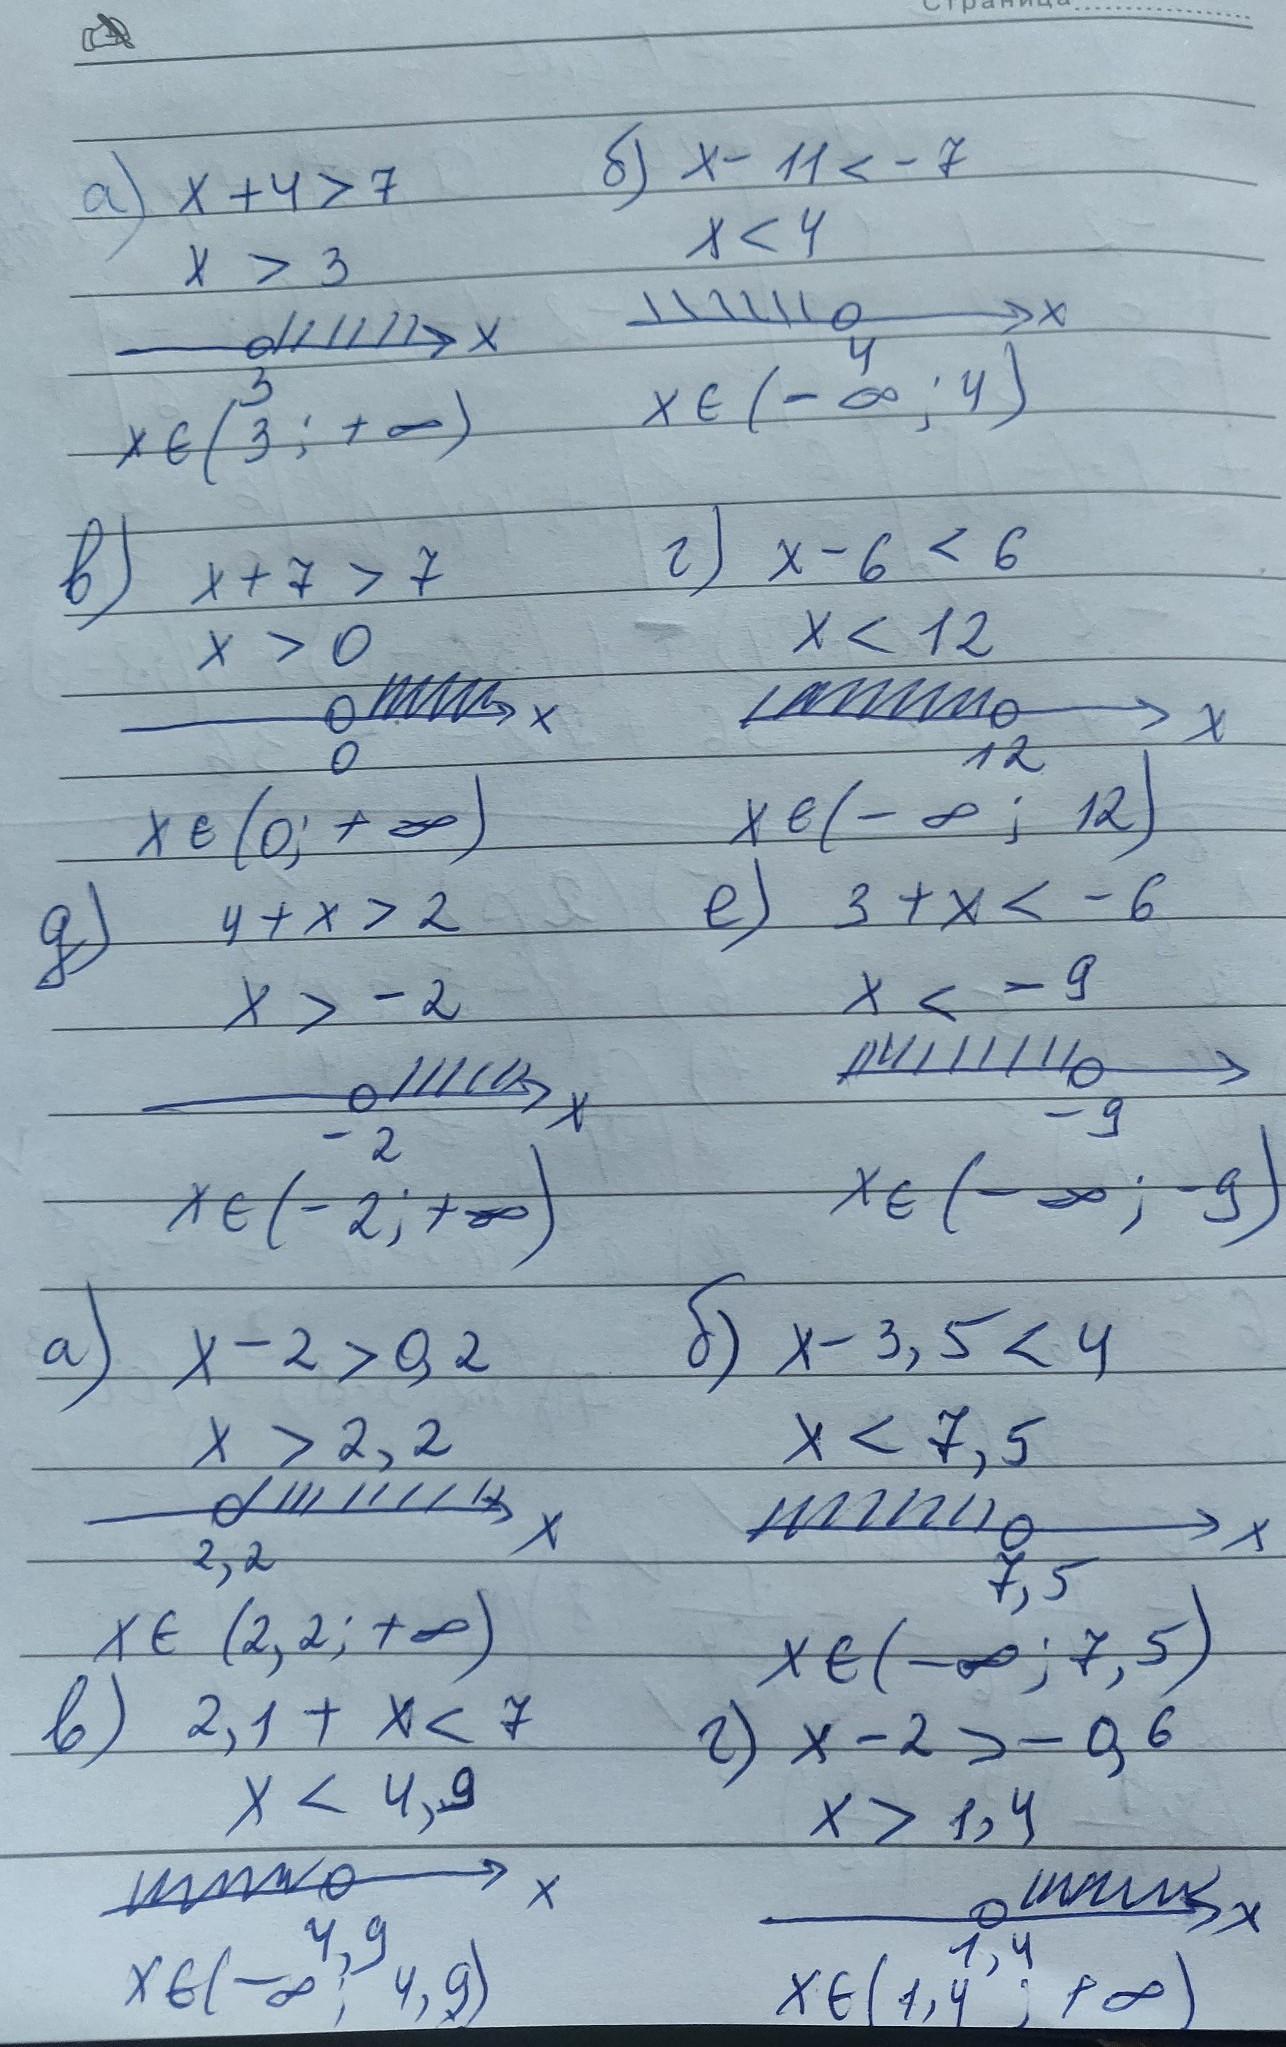 Страница
а) x + 4 > 7
x > 3
x
3
x ∈ (3; +∞)
б) x - 11 < -7
x < 4
x
4
x ∈ (-∞; 4)
в) x + 7 > 7
x > 0
x
0
x ∈ (0; +∞)
г) x - 6 < 6
x < 12
x
12
x ∈ (-∞; 12)
д) 4 + x > 2
x > -2
x
-2
x ∈ (-2; +∞)
е) 3 + x < -6
x < -9
-9
x ∈ (-∞; -9)
а) x - 2 > 0,2
x > 2,2
x
2,2
x ∈ (2,2; +∞)
б) x - 3,5 < 4
x < 7,5
x
7,5
x ∈ (-∞; 7,5)
в) 2,1 + x < 7
x < 4,9
x
4,9
x ∈ (-∞; 4,9)
г) x - 2 > -0,6
x > 1,4
x
1,4
x ∈ (1,4; +∞)